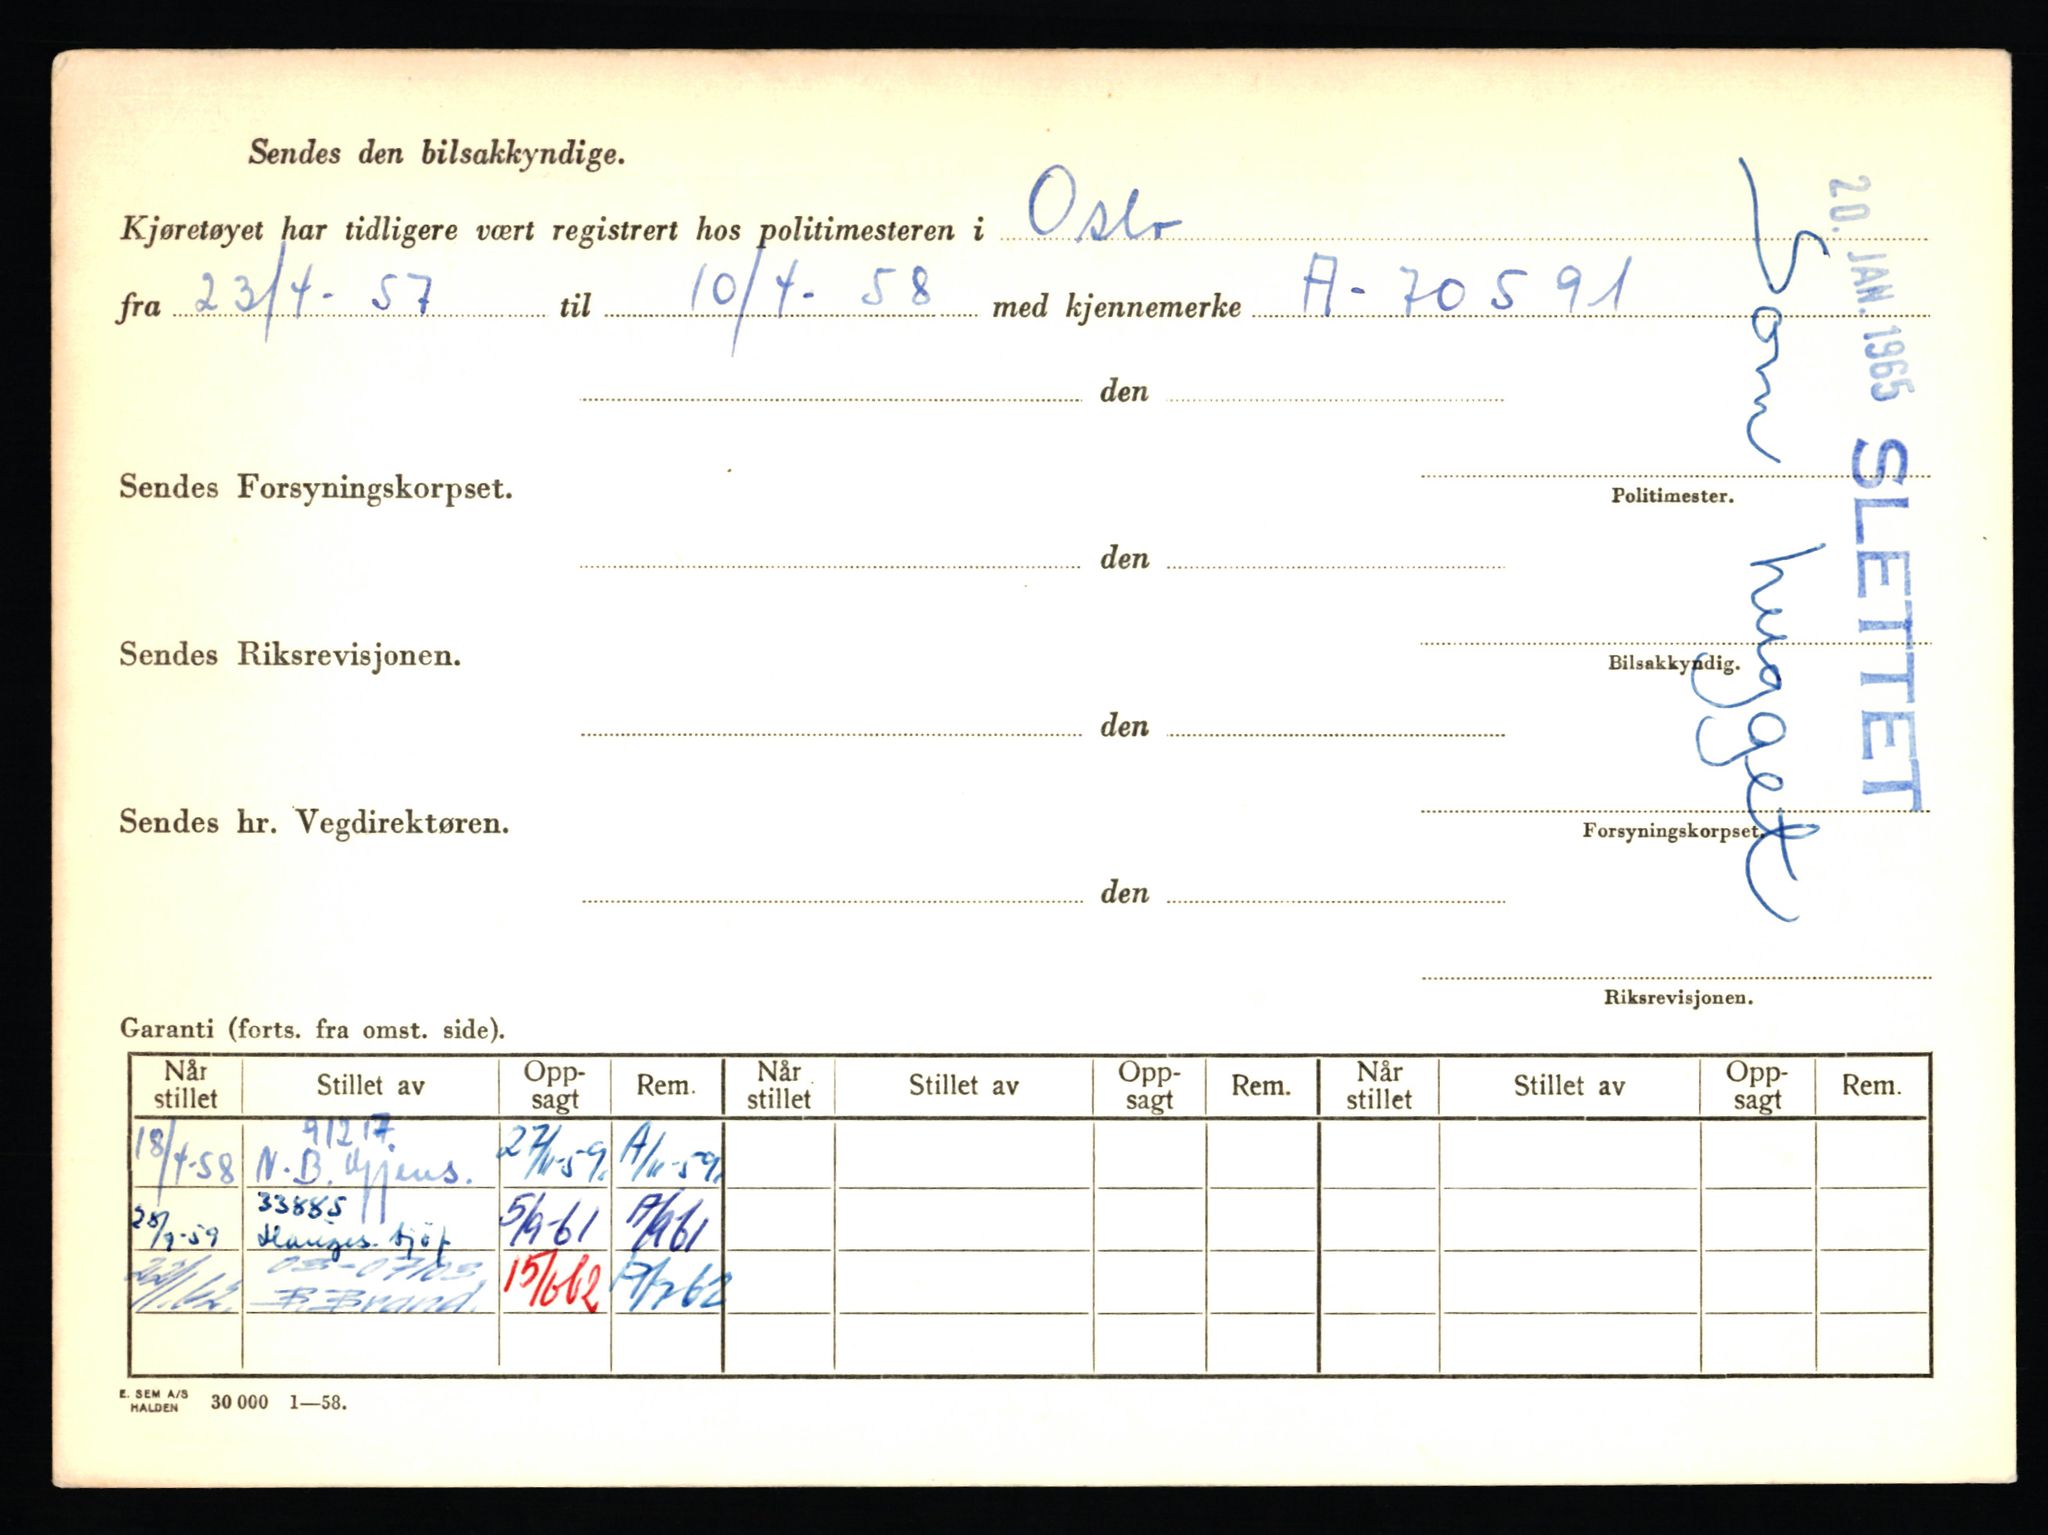 Sendes den bilsakkyndige.
Kjøretøyet har tidligere vært registrert hos politimesteren i Oslo
fra 23/4-57 til 10/4-58 med kjennemerke A-70591
den
Politimester.
Sendes Forsyningskorpset.
den
Bilsakkyndig.
Sendes Riksrevisjonen.
den
Forsyningskorpset.
Sendes hr. Vegdirektøren.
den
Riksrevisjonen.
20. JAN. 1965 SLETTET
Som hugget
Garanti (forts. fra omst. side).
Når stillet Stillet av Opp-sagt Rem. Når stillet Stillet av Opp-sagt Rem. Når stillet Stillet av Opp-sagt Rem.
91217.
18/4-58 N.B. Gjens. 27/11-59. A/11-59.
33885
28/9-59 5/9-61 A/9 61
03-07103
B. Brand. 15/6 62
E. SEM A/S
HALDEN 30 000 1—58.